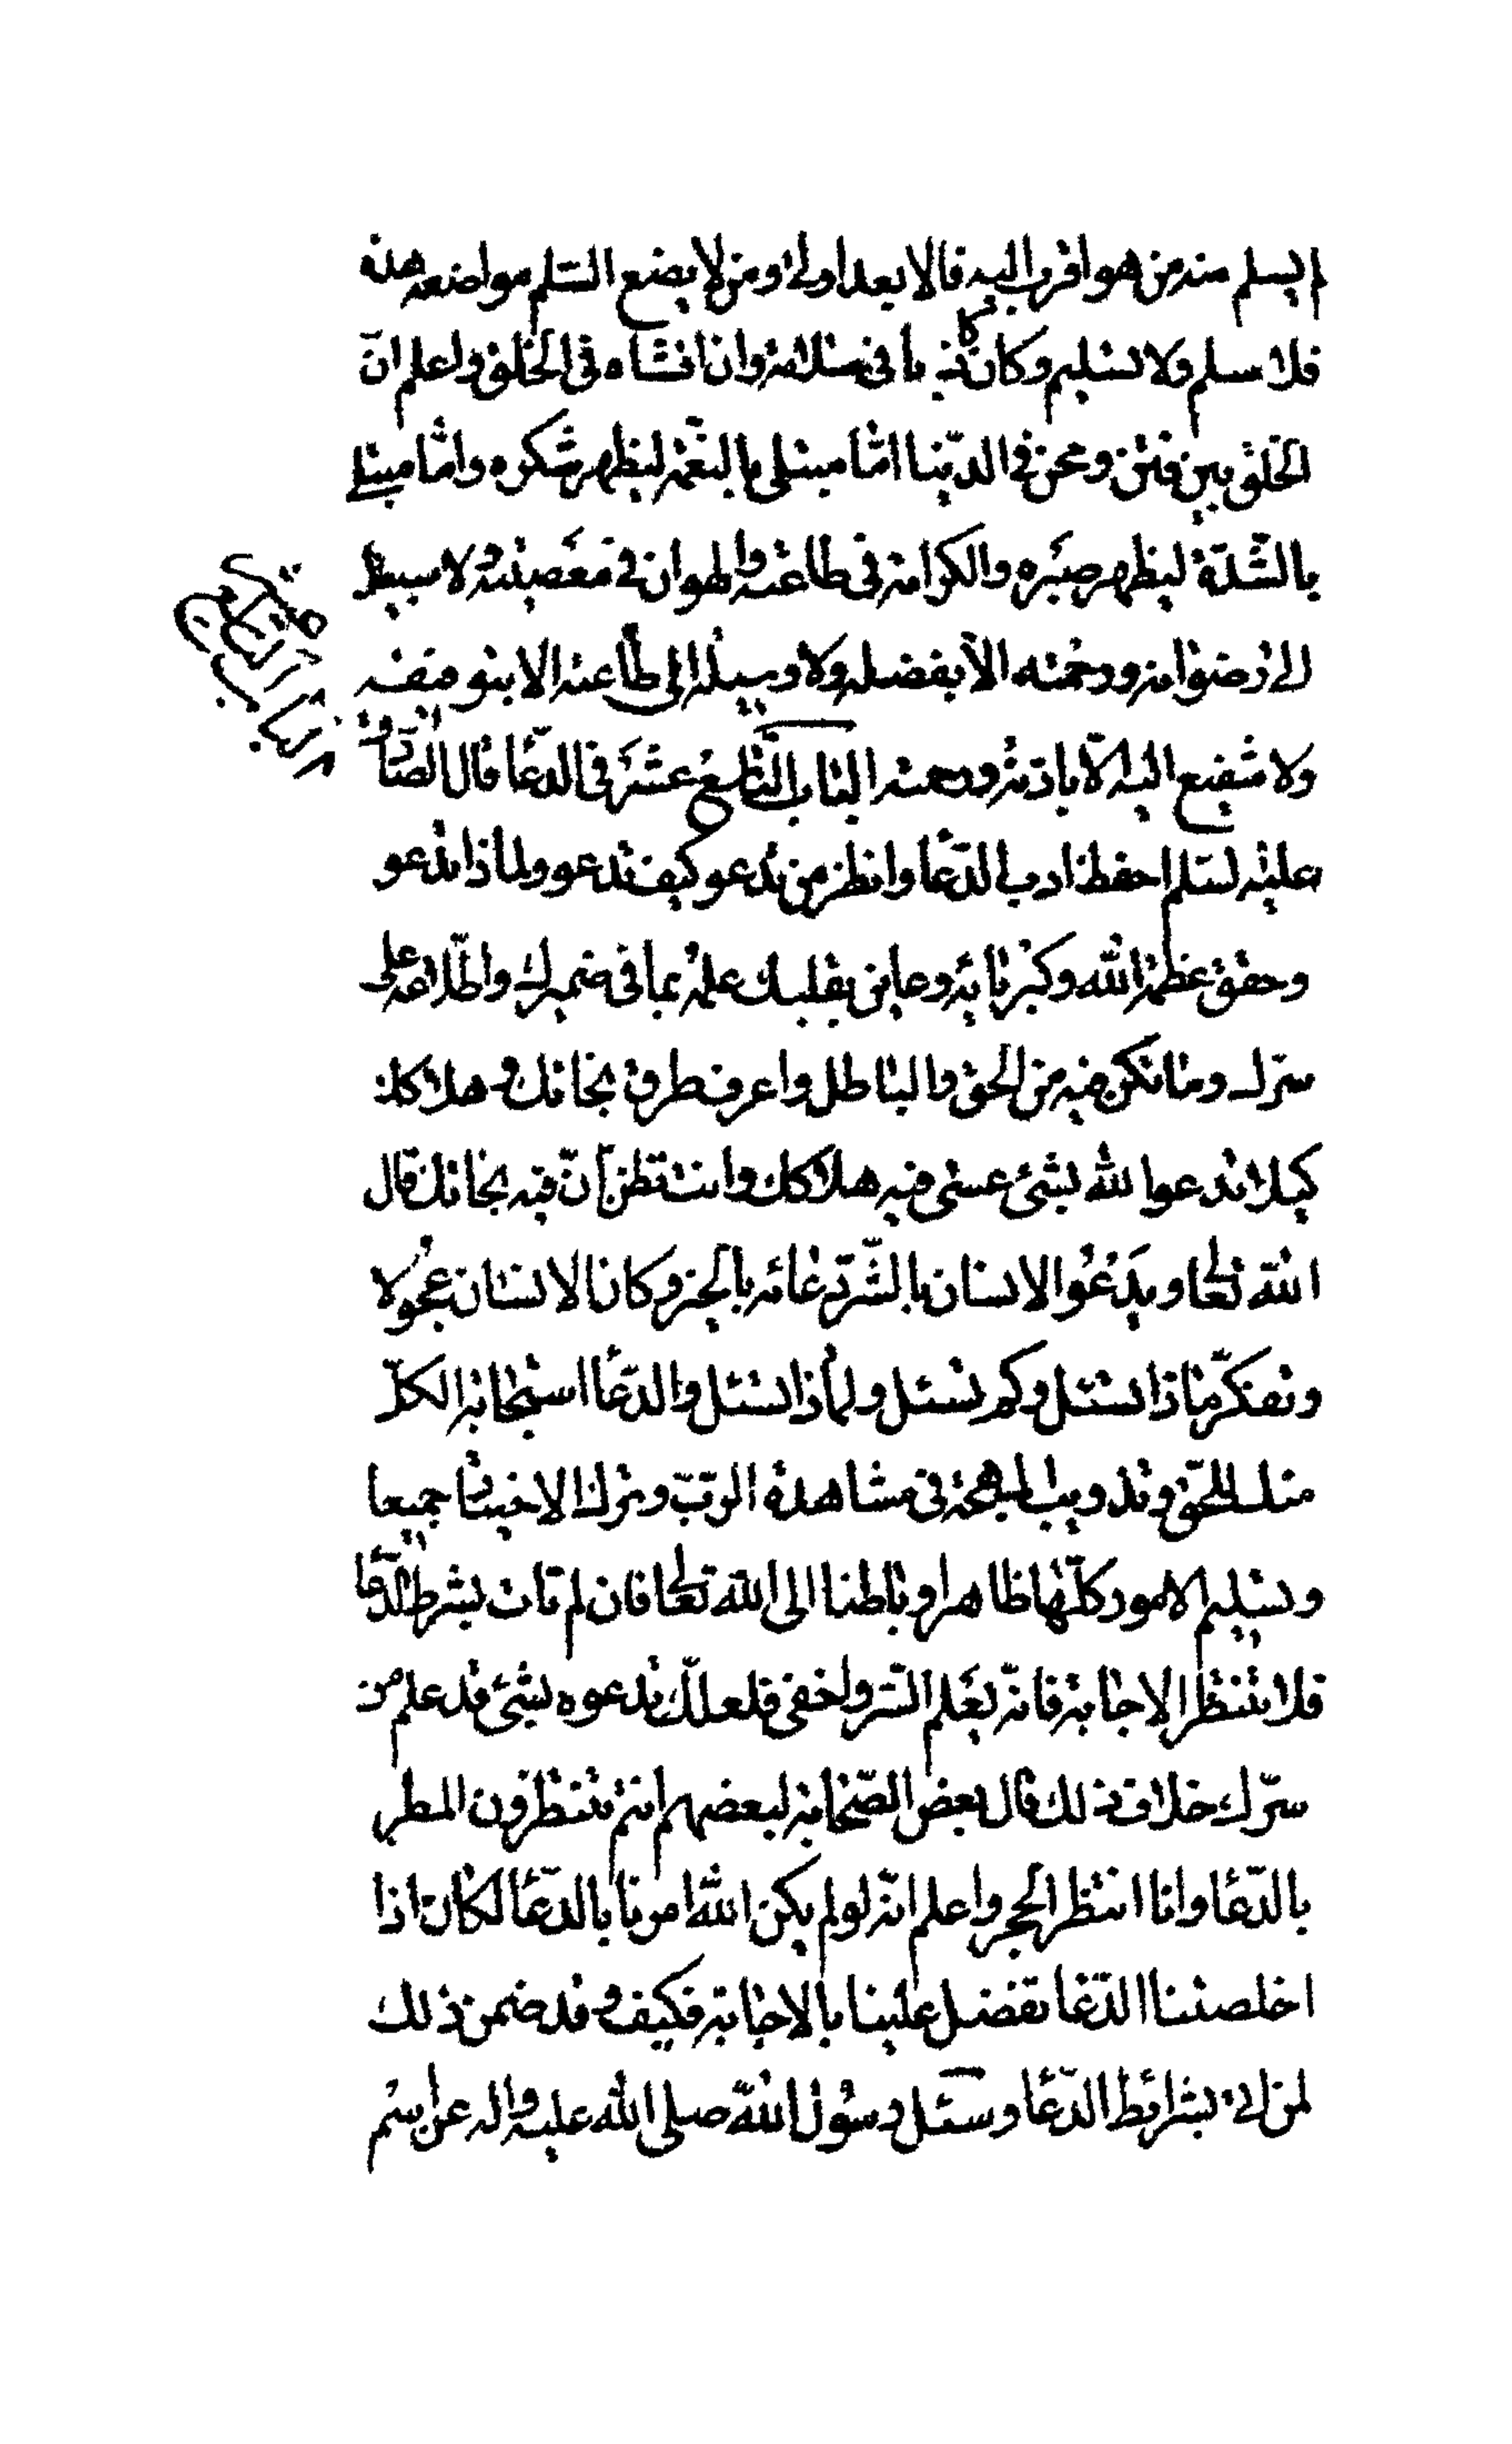 لم يسلم منه من هو اقرب اليه فالابعد اولى ومن لا يضع السّلم مواضعه هذه
فلا سلم ولا تسليم وكان كاذبا فى سلامه وان افشاه فى الخلق واعلم انّ
الخلق بين فتن ومحن فى الدّنيا امّا مبتلى بالنّعمة ليظهر شكره وامّا مبتلى
بالشّدّة ليظهر صبره والكرامة فى طاعته والهوان فى معصيته ولا سبيل
الى رضوانه ورحمته الّا بفضله ولا وسيلة الى طاعته الا بتوفيقه
ولا شفيع اليه الّا باذنه ورحمته الباب التّاسع عشر فى الدّعا قال الصّادق
عليه لسّلم احفظ ادب الدّعا وانظر من تدعو كيف تدعو ولماذا تدعو
وحقق عظمة الله وكبريائه وعاين بقلبك علمه بما فى ضميرك واطّلاعه على
سرّك وما تكن فيه من الحق والباطل واعرف طرق نجاتك وهلاكك
كيلا تدعوا لله بشئ عسى فيه هلاكك وانت تظن انّ فيه نجاتك قال
الله تعالى ويدعو الانسان بالشّر دعائه بالخير وكان الانسان عجولا
وتفكّر ماذا تسئل وكم تسئل ولماذا تسئل والدّعا استجابة الكلّ
منك للحقّ وتذويب المهجة فى مشاهدة الربّ وترك الاختيار جميعا
وتسليم الامور كلّها ظاهرا وباطنا الى الله تعالى فان لم تات بشرط الدّعا
فلا تنتظر الاجابة فانّه يعلم السّر واخفى فلعلّك تدعوه بشئ قد علم من
سرّك خلاف ذلك قال بعض الصّحابة لبعضهم انتم تنتظرون المطر
بالدّعا وانا انتظر الحجر واعلم انّه لو لم يكن الله امرنا بالدّعا لكان اذا
اخلصنا الدّعا تفضل علينا بالاجابة فكيف وقد ضمن ذلك
لمن اتى بشرائط الدّعا وسئل رسول الله صلى الله عليه واله عن اسم